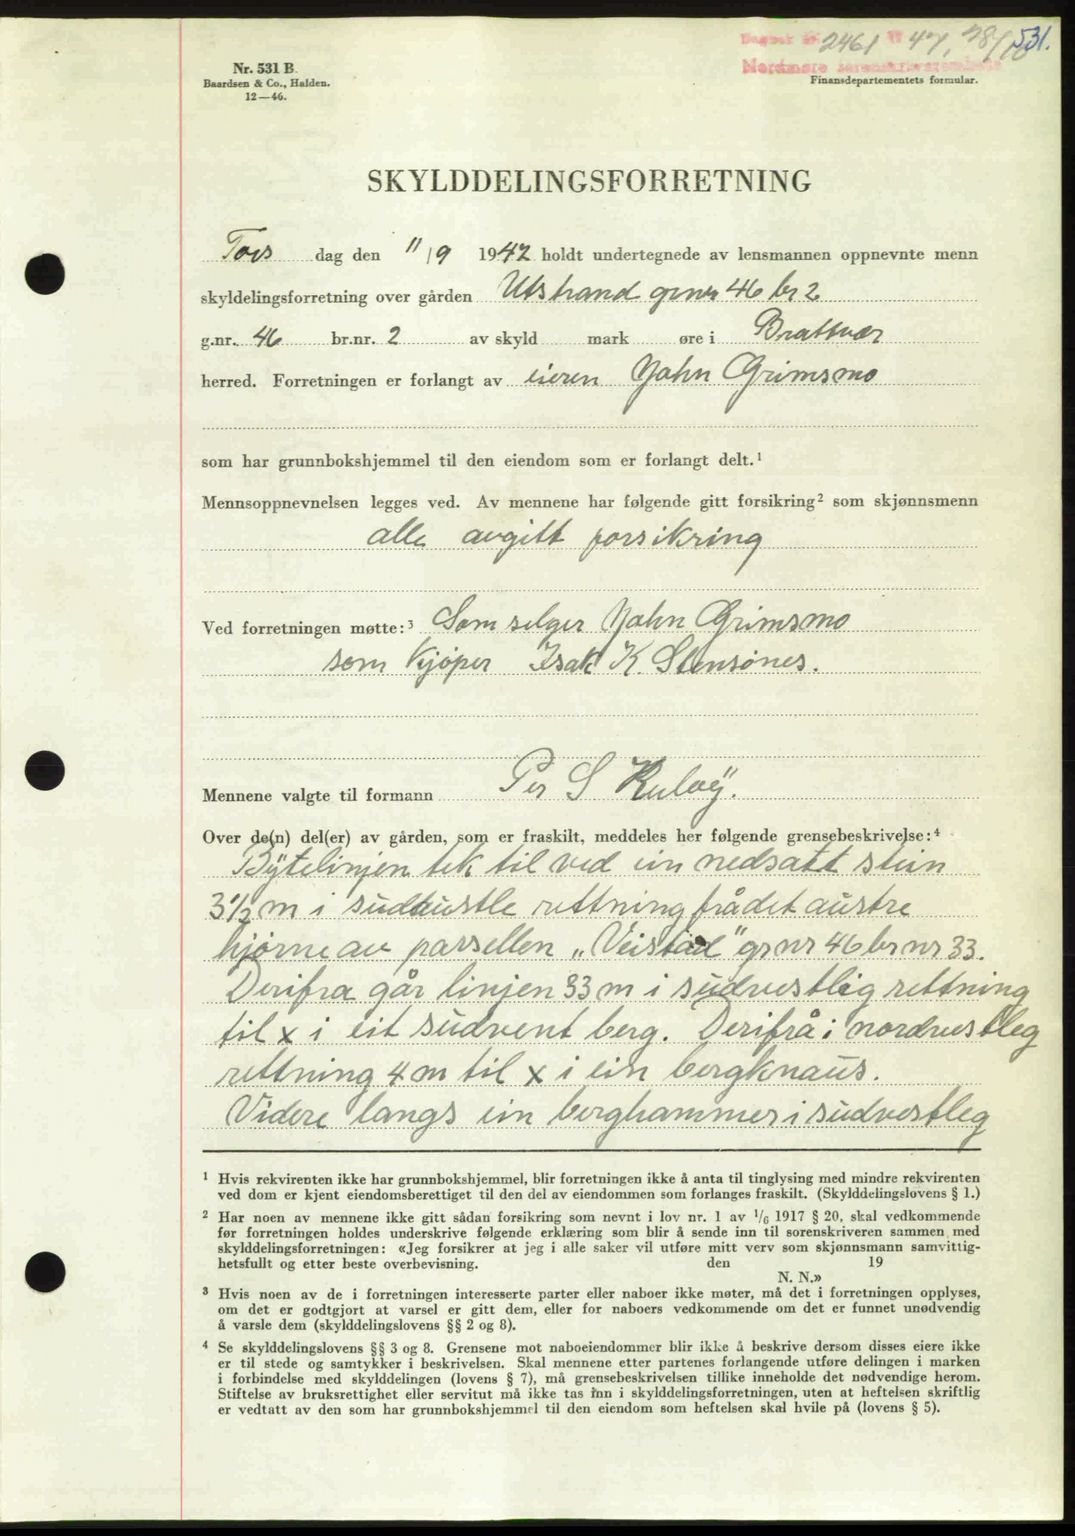 Dagbok nr. 2461 19 47, 28/10 531.
Nordmøre sorenskriverembede
Nr. 531 B.
Baardsen & Co., Halden.
12—46.
Finansdepartementets formular.
SKYLDDELINGSFORRETNING
Tors dag den 11/9 1947 holdt undertegnede av lensmannen oppnevnte menn
skyldelingsforretning over gården Utstrand grnr 46 br 2
g.nr. 46 br.nr. 2 av skyld mark øre i Brattvær
herred. Forretningen er forlangt av eieren John Grimsmo
som har grunnbokshjemmel til den eiendom som er forlangt delt.¹
Mennsoppnevnelsen legges ved. Av mennene har følgende gitt forsikring² som skjønnsmenn
alle avgitt forsikring
Ved forretningen møtte:³ Som selger John Grimsmo
som kjøper Isak K. Stensønes.
Mennene valgte til formann Per S Kuløy.
Over de(n) del(er) av gården, som er fraskilt, meddeles her følgende grensebeskrivelse:⁴
Bytelinjen tek til ved ein nedsatt stein
3½ m i sudaustle rettning frå det austre
hjørne av parsellen „Veistad" grnr 46 br nr 33.
Derifra går linjen 33 m i sudvestleg rettning
til x i eit sudvent berg. Derifrå i nordvestleg
rettning 4 m til x i ein bergknaus.
Videre langs ein berghammer i sudvestleg
¹ Hvis rekvirenten ikke har grunnbokshjemmel, blir forretningen ikke å anta til tinglysing med mindre rekvirenten
ved dom er kjent eiendomsberettiget til den del av eiendommen som forlanges fraskilt. (Skylddelingslovens § 1.)
² Har noen av mennene ikke gitt sådan forsikring som nevnt i lov nr. 1 av 1/6 1917 § 20, skal vedkommende
før forretningen holdes underskrive følgende erklæring som blir å sende inn til sorenskriveren sammen med
skylddelingsforretningen: «Jeg forsikrer at jeg i alle saker vil utføre mitt verv som skjønnsmann samvittig-
hetsfullt og etter beste overbevisning. den 19
N. N.»
³ Hvis noen av de i forretningen interesserte parter eller naboer ikke møter, må det i forretningen opplyses,
om det er godtgjort at varsel er gitt dem, eller for naboers vedkommende om det er funnet unødvendig
å varsle dem (skylddelingslovens §§ 2 og 8).
⁴ Se skylddelingslovens §§ 3 og 8. Grensene mot naboeiendommer blir ikke å beskrive dersom disses eiere ikke
er til stede og samtykker i beskrivelsen. Skal mennene etter partenes forlangende utføre delingen i marken
i forbindelse med skylddelingen (lovens § 7), må grensebeskrivelsen tillike inneholde det nødvendige herom.
Stiftelse av bruksrettighet eller servitut må ikke tas inn i skylddelingsforretningen, uten at heftelsen skriftlig
er vedtatt av den som har grunnbokshjemmel til den eiendom som heftelsen skal hvile på (lovens § 5).